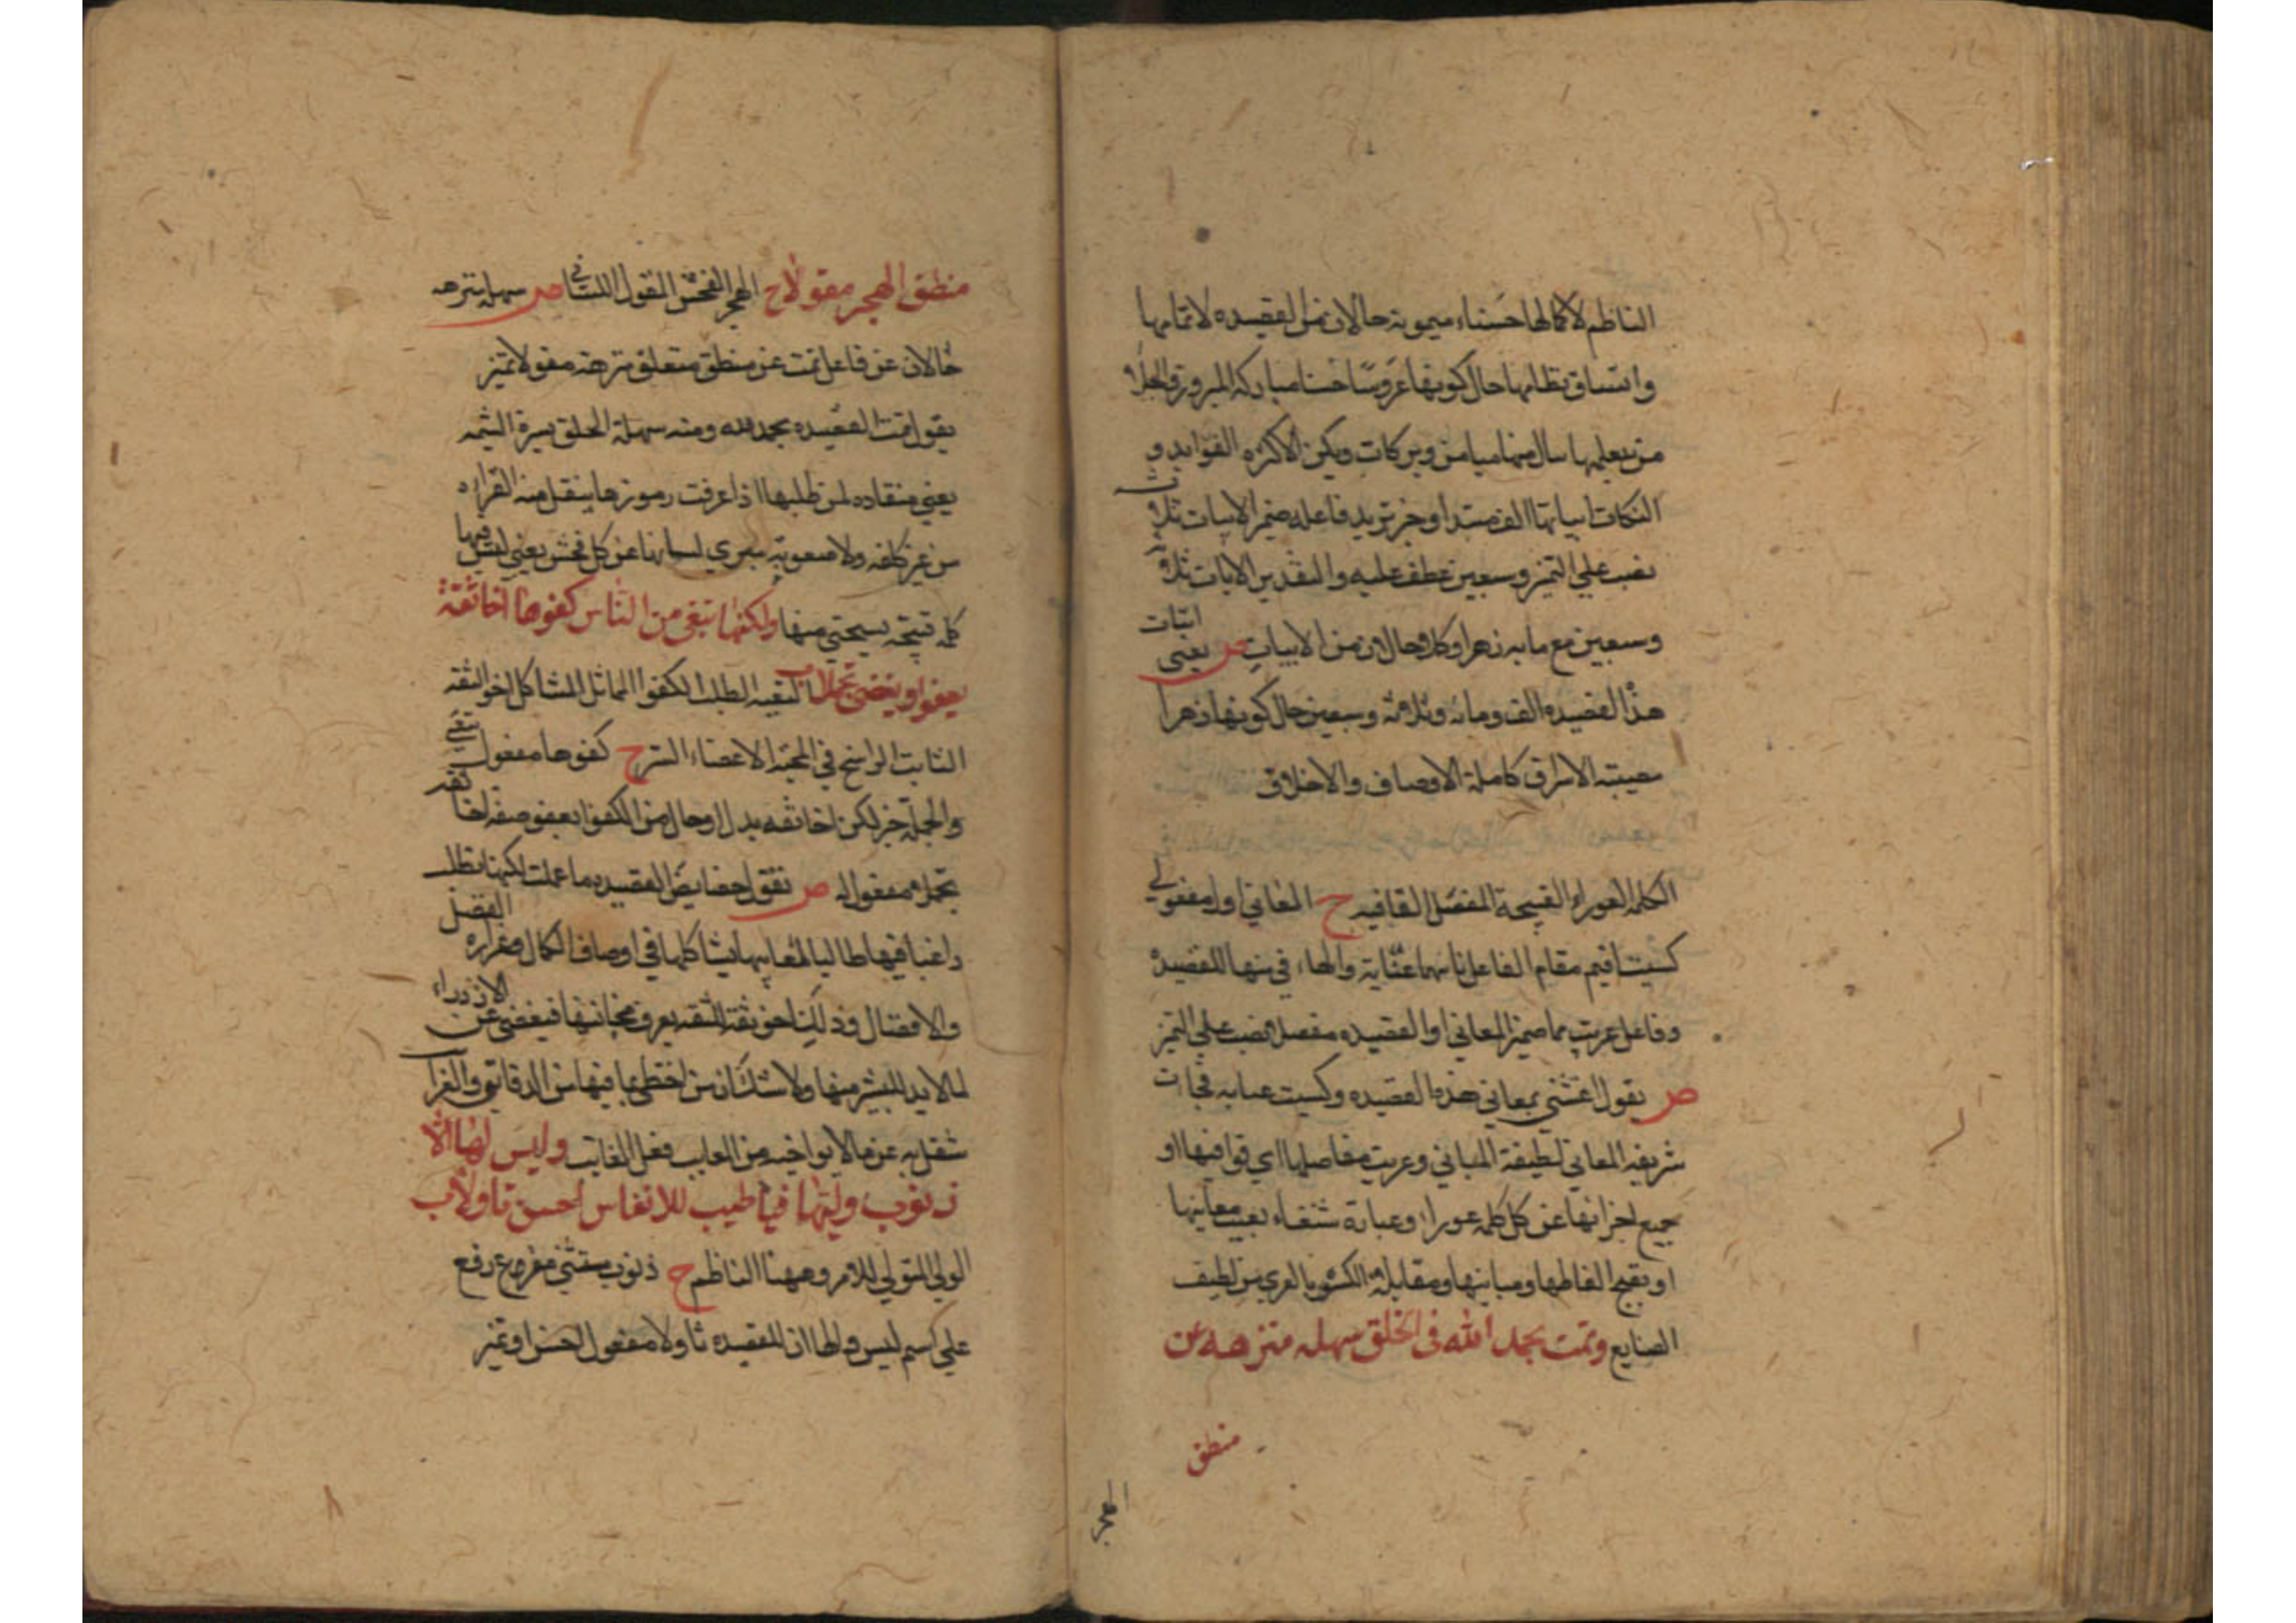 الناظم لاكمالها حسناء ميمونة حالان من القصيده لاتمامها
واتساق نظامها حال كونها عروسا حسنا مباركة المبروز والجلا
من يعلمها سال منها ميامن وبركات ويكن الاكره الفوايد و
النكات ابياتها الف مبتدا وخبر تزيد فاعله ضمير الابيات ثلاثه
نصب علي التميز وسبعين عطف عليه والتقدير الابيات ثلاثه
وسبعين مع مايه زهرا وكلا حالان من الابيات يعني ابيات
هذا القصيده الف ومائه وثلاثه وسبعين حال كونها زهرا
كاملة الاوصاف والاخلاق
الكلمه العوراء القبيحة المفصل القافيه ح المعاني اول مفعولي
كسيت اقيم مقام الفاعل ثانيهما عناية والهاء في منها للقصيده
وفاعل عريت ضمير المعاني او القصيده مفصلا نصب علي التميز
ص يقول اعتني بمعاني هذه القصيده وكسيت عنايه فجاءت
شريفه المعاني لطيفة المباني وعريت مفاصلها اي قوافيها او
جميع اجزائها عن كل كلمه عوراء وعبارة شنعاء يعيب معانيها
او يقبح الفاظها ومبانيها ومقابلة الكسو بالعري من لطيف
الصنايع وتمت بحمد الله في الخلق سهله منزهه عن
منطق
الهجر
منطق الهجر مقولا ح الهجر الفحش القول اللسان ص سهله منزهه
حالان عن فاعل تمت عن منطق متعلق منزهة مقولا تميز
يقول تمت القصيده بحمد الله ومنه سهلة الخلق يسيرة الشيمه
يعني منقاده لمن طلبها اذا عرفت رموزها ينقل منه القراءه
من غير كلفه ولا صعوبه مبري لسانها عن كل فحش يعني ليس فيها
كلمه قبيحه يستحي منها ولكنها تبغي من الناس كفوها اخا ثقة
يعفو ويغضي تجملا البغيه الطلب الكفو المماثل المشاكل اخو الثقه
الثابت الراسخ في المحبة الاغضاء الستر ح كفوها مفعول تبغي
والجملة خبر لكن اخا ثقه بدل او حال من الكفو يعفو صفة اخا ثقه
تجملا مفعول له ص تقول خصايص القصيده ما عملت لكنها تطلب
راغبا فيها طالبا لمعانيها يشاكلها في اوصاف الكمال الفضل
والافضال وذلك اخو ثقة يعرف فيغضي عن الازدراء
لما لابد للبشر منها ولا شك ان من احتظي بما فيها من الدقايق والغرا
شغل به عن ما لا يواخيه من المعايب فعل الغايب وليس لها الا
ذنوب وليها فيا طيب الانفاس احسن تاولا ب
الولي المتولي للامر وههنا الناظم ح ذنوب مستثني مفرغ رفع
علي اسم ليس ولها اذ للقصيده تاولا مفعول احسن او تميز